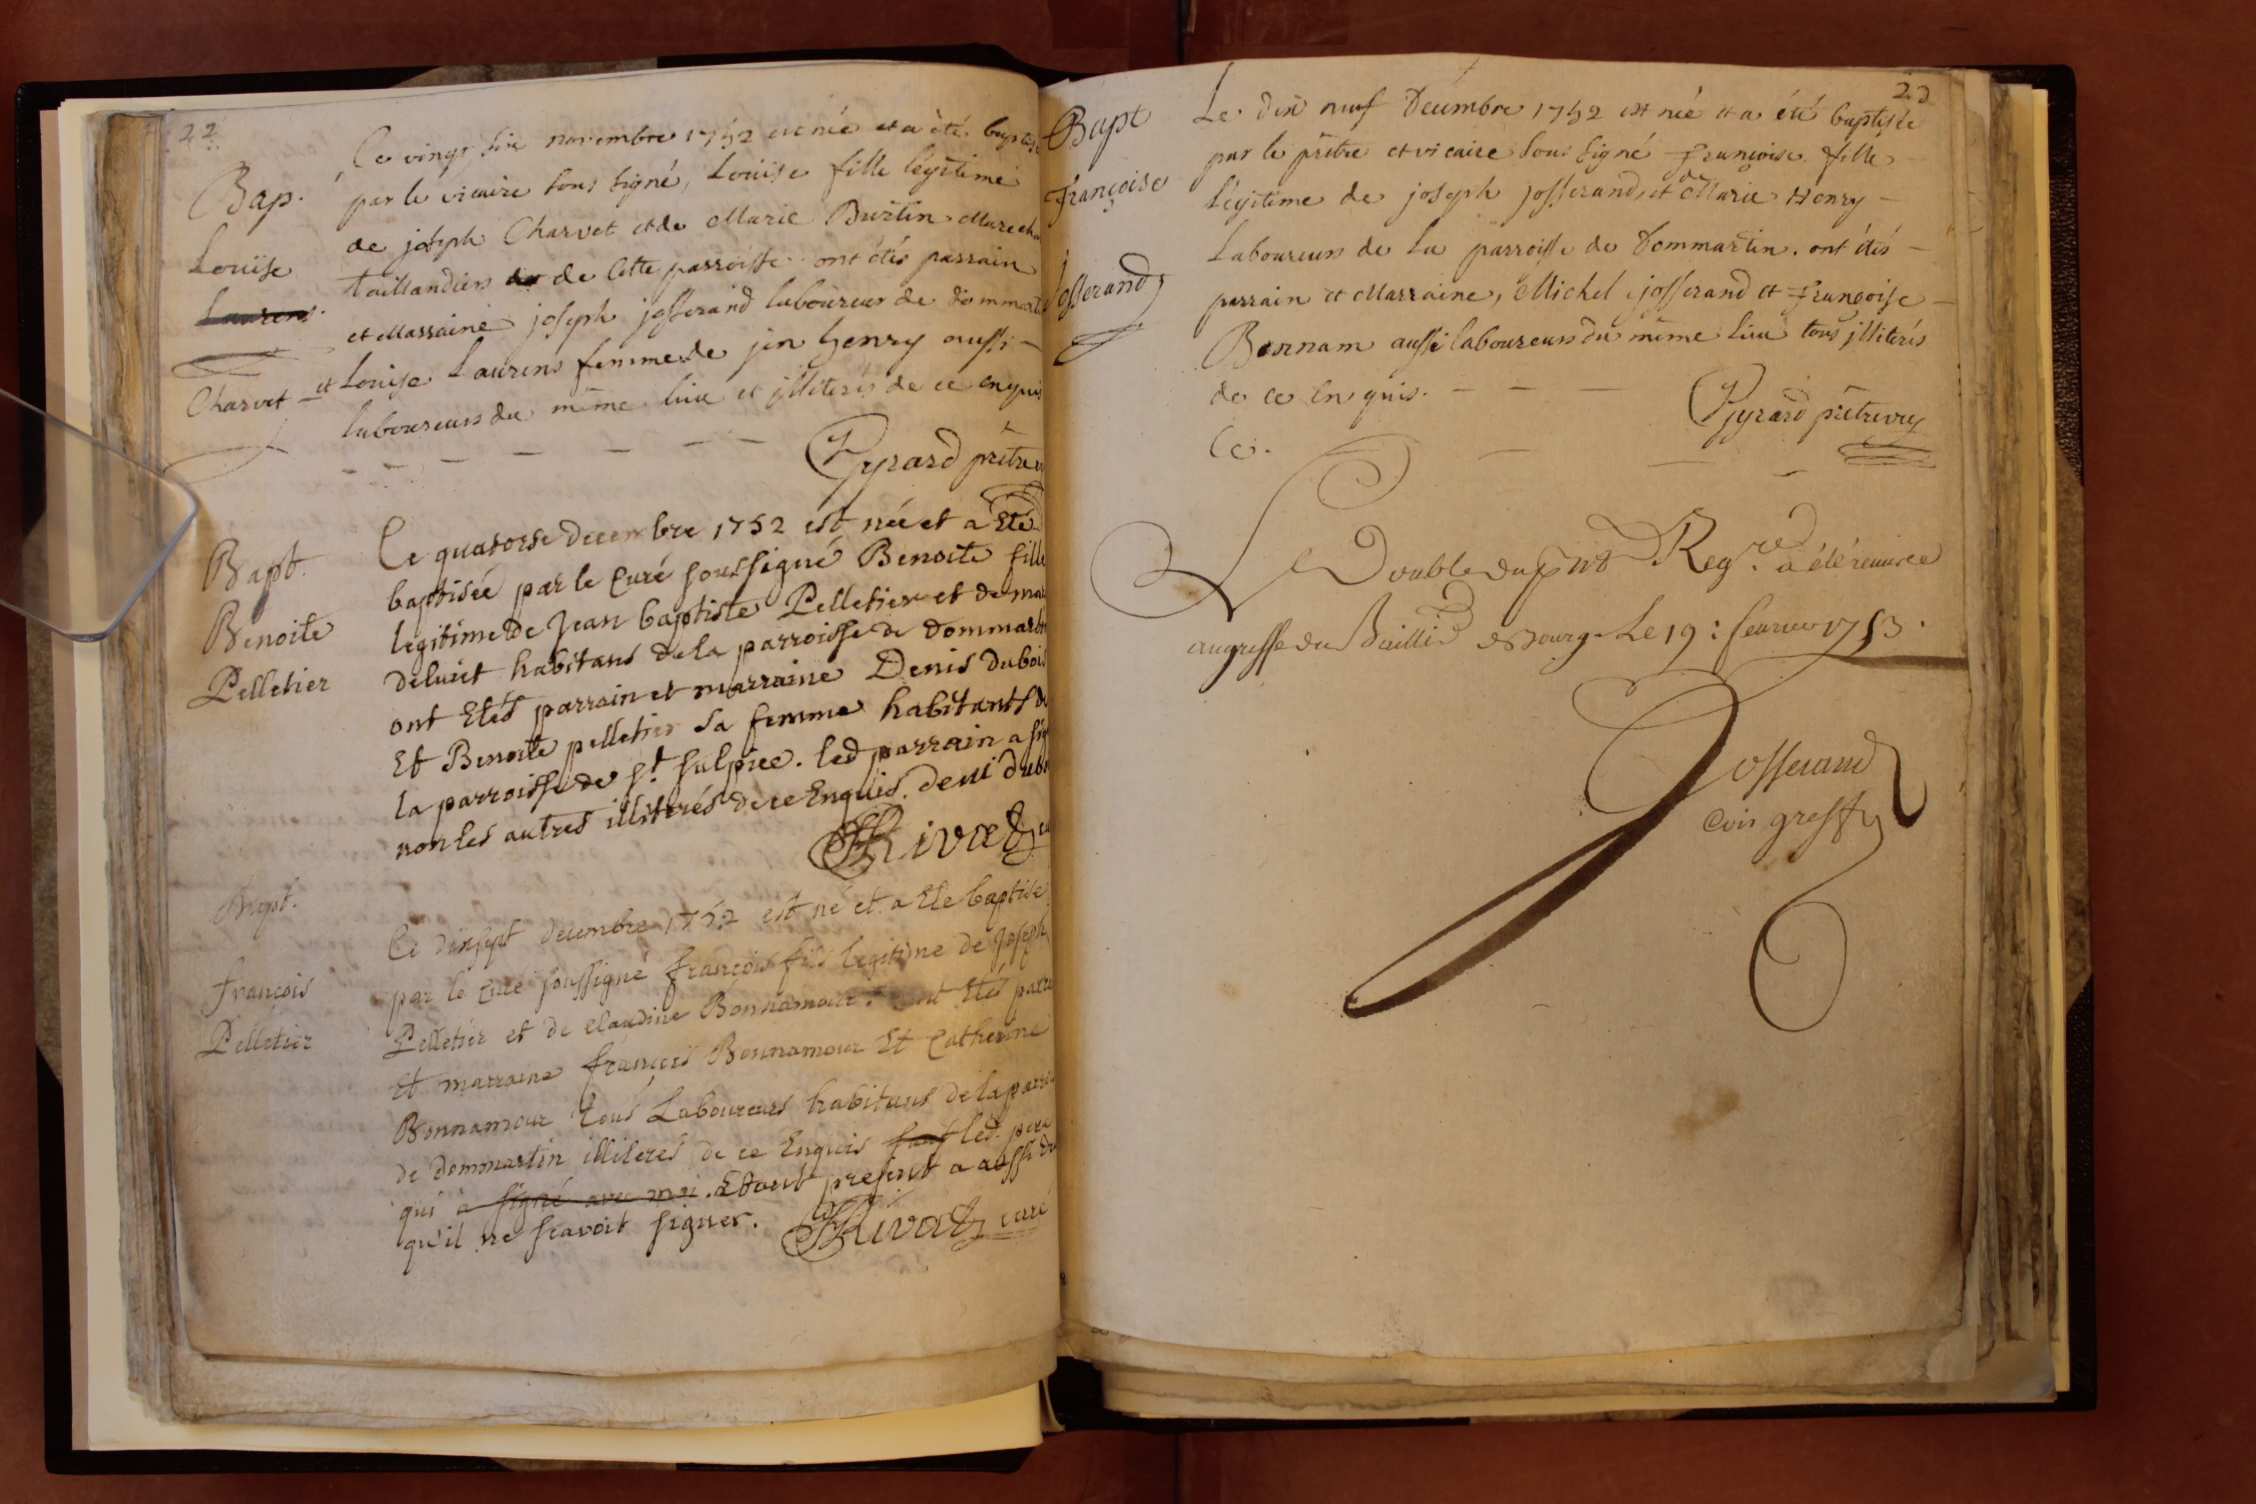 22
Bap.
Louise
Laurens
Charvet
Ce vingt six novembre 1752 est née et a été baptisé
par le vicaire sous signé, Louise fille légitime
de joseph Charvet et de Marie Burtin Marecha
taillandiers de Cette parroisse ont étés parrain
et Marraine joseph josserand laboureur de dommart
et Louise Laurens femme de jen henry aussi
laboureurs du même lieu et jlliterés de ce enquis
Gyrard prêtre
Bapt.
Benoite
Pelletier
Ce quatorse decembre 1752 est née et a Eté
baptisée par le Curé soussigné Benoite fille
legitime de Jean baptiste Pelletier et de mar
habitans de la parroisse de dommart
ont Etés parrain et marraine Denis dubois
Et Benoite pelletier sa femme habitants de
la parroisse de st sulpice. led parrain a sig
non les autres illiterés de ce Enquis. deni dubo
Rivat
Bapt.
françois
Pelletier
Ce dixsept decembre 1752 est né et a Ete baptisé
par le Curé soussigné françois fils legitime de Joseph
Pelletier et de claudine Bonnamour. ont Etés parra
Et marraine françois Bonnamour Et Catherine
Bonnamour tous Laboureurs habitans de la parroi
de dommartin illiteres de ce Enquis sauf led. pere
qui a signé avec moi. Etant present a aussi dit
qu'il ne scavoit signer. Rivat curé
23
Bapt
françoise
josserand
Le dix neuf Decembre 1752 est née et a été baptisée
par le prêtre et vicaire sous signé françoise fille
légitime de joseph josserand, et de Marie Henry
Laboureurs de la parroisse de Dommartin. ont étés
parrain et Marraine, Michel josserand et françoise
Bonnam aussi laboureurs du même lieu tous jlliterés
de ce enquis.
Gyrard prêtre vic
Ce.
Le Double du pnt Regre a été remis ce
au greffe du Bailli de Bourg Le 19: feurier 1753.
Josserand
greff